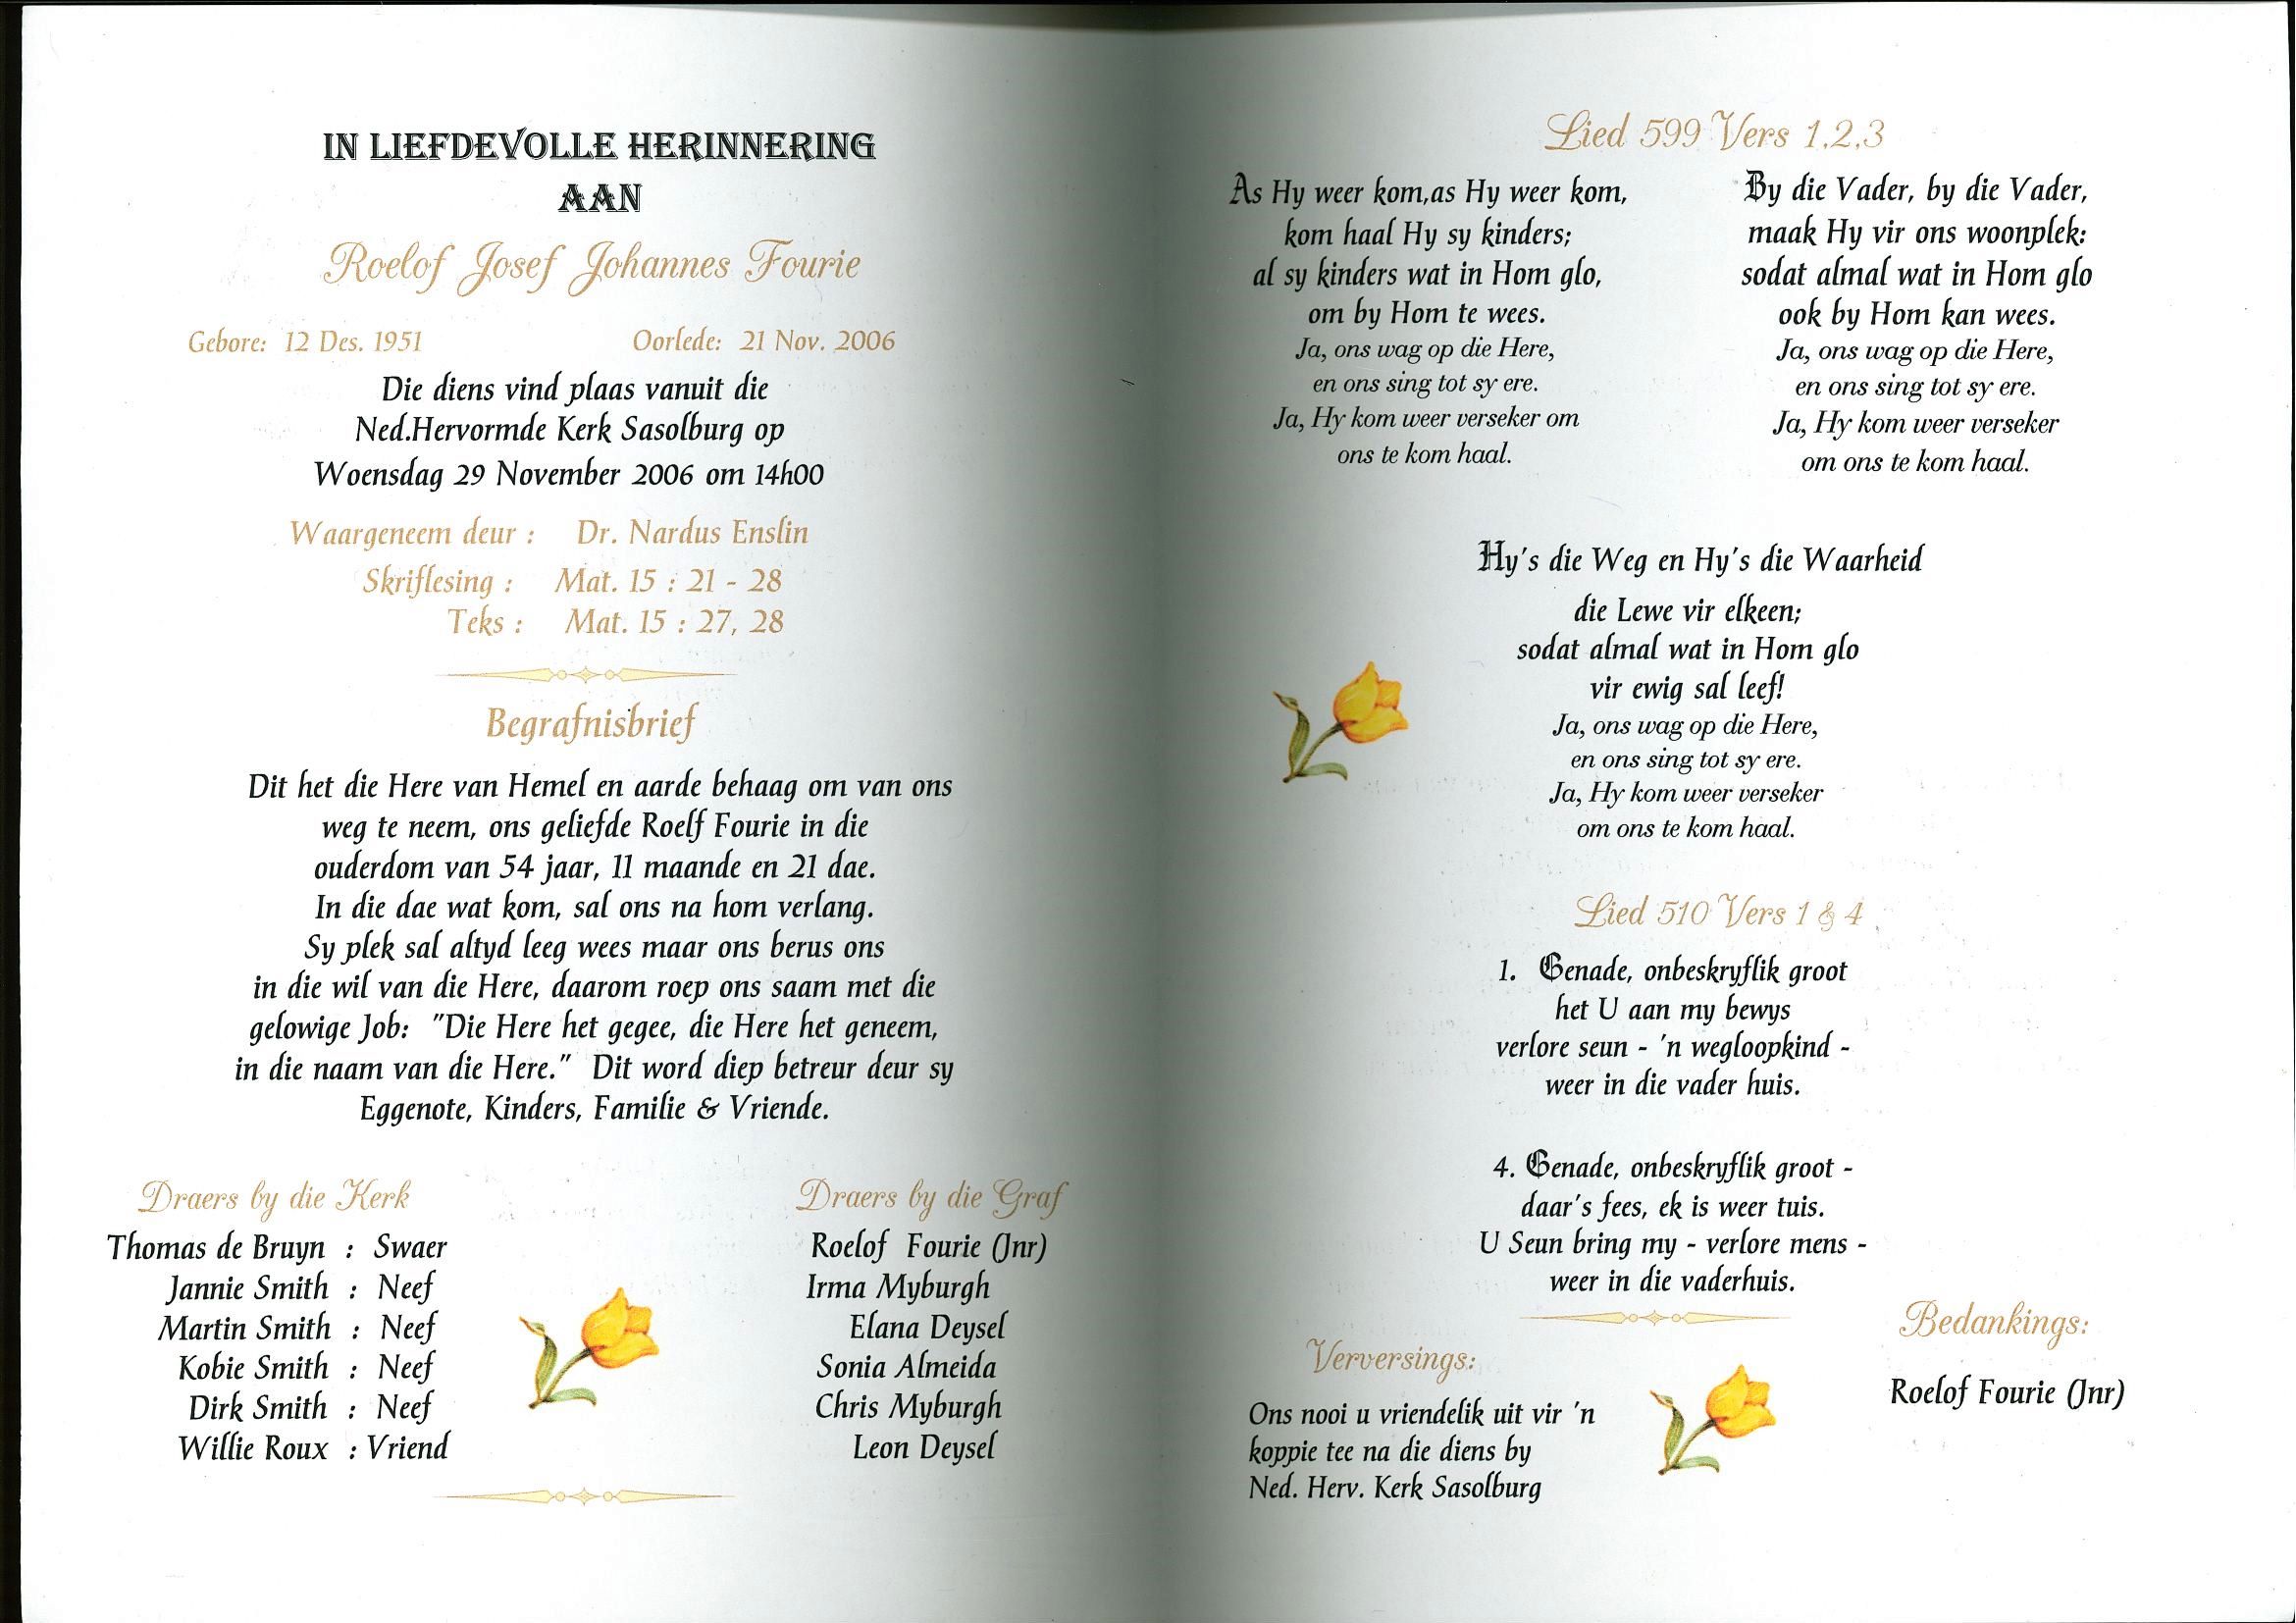 IN LIEFDEVOLLE HERINNERING
AAN
Roelof Josef Johannes Fourie
Gebore: 12 Des. 1951 Oorlede: 21 Nov. 2006
Die diens vind plaas vanuit die
Ned.Hervormde Kerk Sasolburg op
Woensdag 29 November 2006 om 14h00
Waargeneem deur : Dr. Nardus Enslin
Skriflesing : Mat. 15 : 21 - 28
Teks : Mat. 15 : 27, 28
Begrafnisbrief
Dit het die Here van Hemel en aarde behaag om van ons
weg te neem, ons geliefde Roelf Fourie in die
ouderdom van 54 jaar, 11 maande en 21 dae.
In die dae wat kom, sal ons na hom verlang.
Sy plek sal altyd leeg wees maar ons berus ons
in die wil van die Here, daarom roep ons saam met die
gelowige Job: "Die Here het gegee, die Here het geneem,
in die naam van die Here." Dit word diep betreur deur sy
Eggenote, Kinders, Familie & Vriende.
Draers by die Kerk
Thomas de Bruyn : Swaer
Jannie Smith : Neef
Martin Smith : Neef
Kobie Smith : Neef
Dirk Smith : Neef
Willie Roux : Vriend
Draers by die Graf
Roelof Fourie (Jnr)
Irma Myburgh
Elana Deysel
Sonia Almeida
Chris Myburgh
Leon Deysel
Lied 599 Vers 1,2,3
As Hy weer kom,as Hy weer kom,
kom haal Hy sy kinders;
al sy kinders wat in Hom glo,
om by Hom te wees.
Ja, ons wag op die Here,
en ons sing tot sy ere.
Ja, Hy kom weer verseker om
ons te kom haal.
By die Vader, by die Vader,
maak Hy vir ons woonplek:
sodat almal wat in Hom glo
ook by Hom kan wees.
Ja, ons wag op die Here,
en ons sing tot sy ere.
Ja, Hy kom weer verseker
om ons te kom haal.
Hy's die Weg en Hy's die Waarheid
die Lewe vir elkeen;
sodat almal wat in Hom glo
vir ewig sal leef!
Ja, ons wag op die Here,
en ons sing tot sy ere.
Ja, Hy kom weer verseker
om ons te kom haal.
Lied 510 Vers 1 & 4
1. Genade, onbeskryflik groot
het U aan my bewys
verlore seun - 'n wegloopkind -
weer in die vader huis.
4. Genade, onbeskryflik groot -
daar's fees, ek is weer tuis.
U Seun bring my - verlore mens -
weer in die vaderhuis.
Verversings:
Ons nooi u vriendelik uit vir 'n
koppie tee na die diens by
Ned. Herv. Kerk Sasolburg
Bedankings:
Roelof Fourie (Jnr)